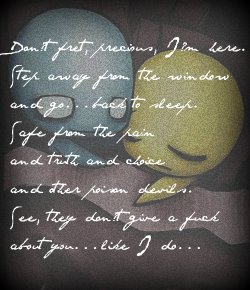 Don't fret, precious, I'm here.
Step away from the window
and go...back to sleep.
Safe from the pain
and truth and choice
and other poison devils.
See, they don't give a fuck
about you...like I do...